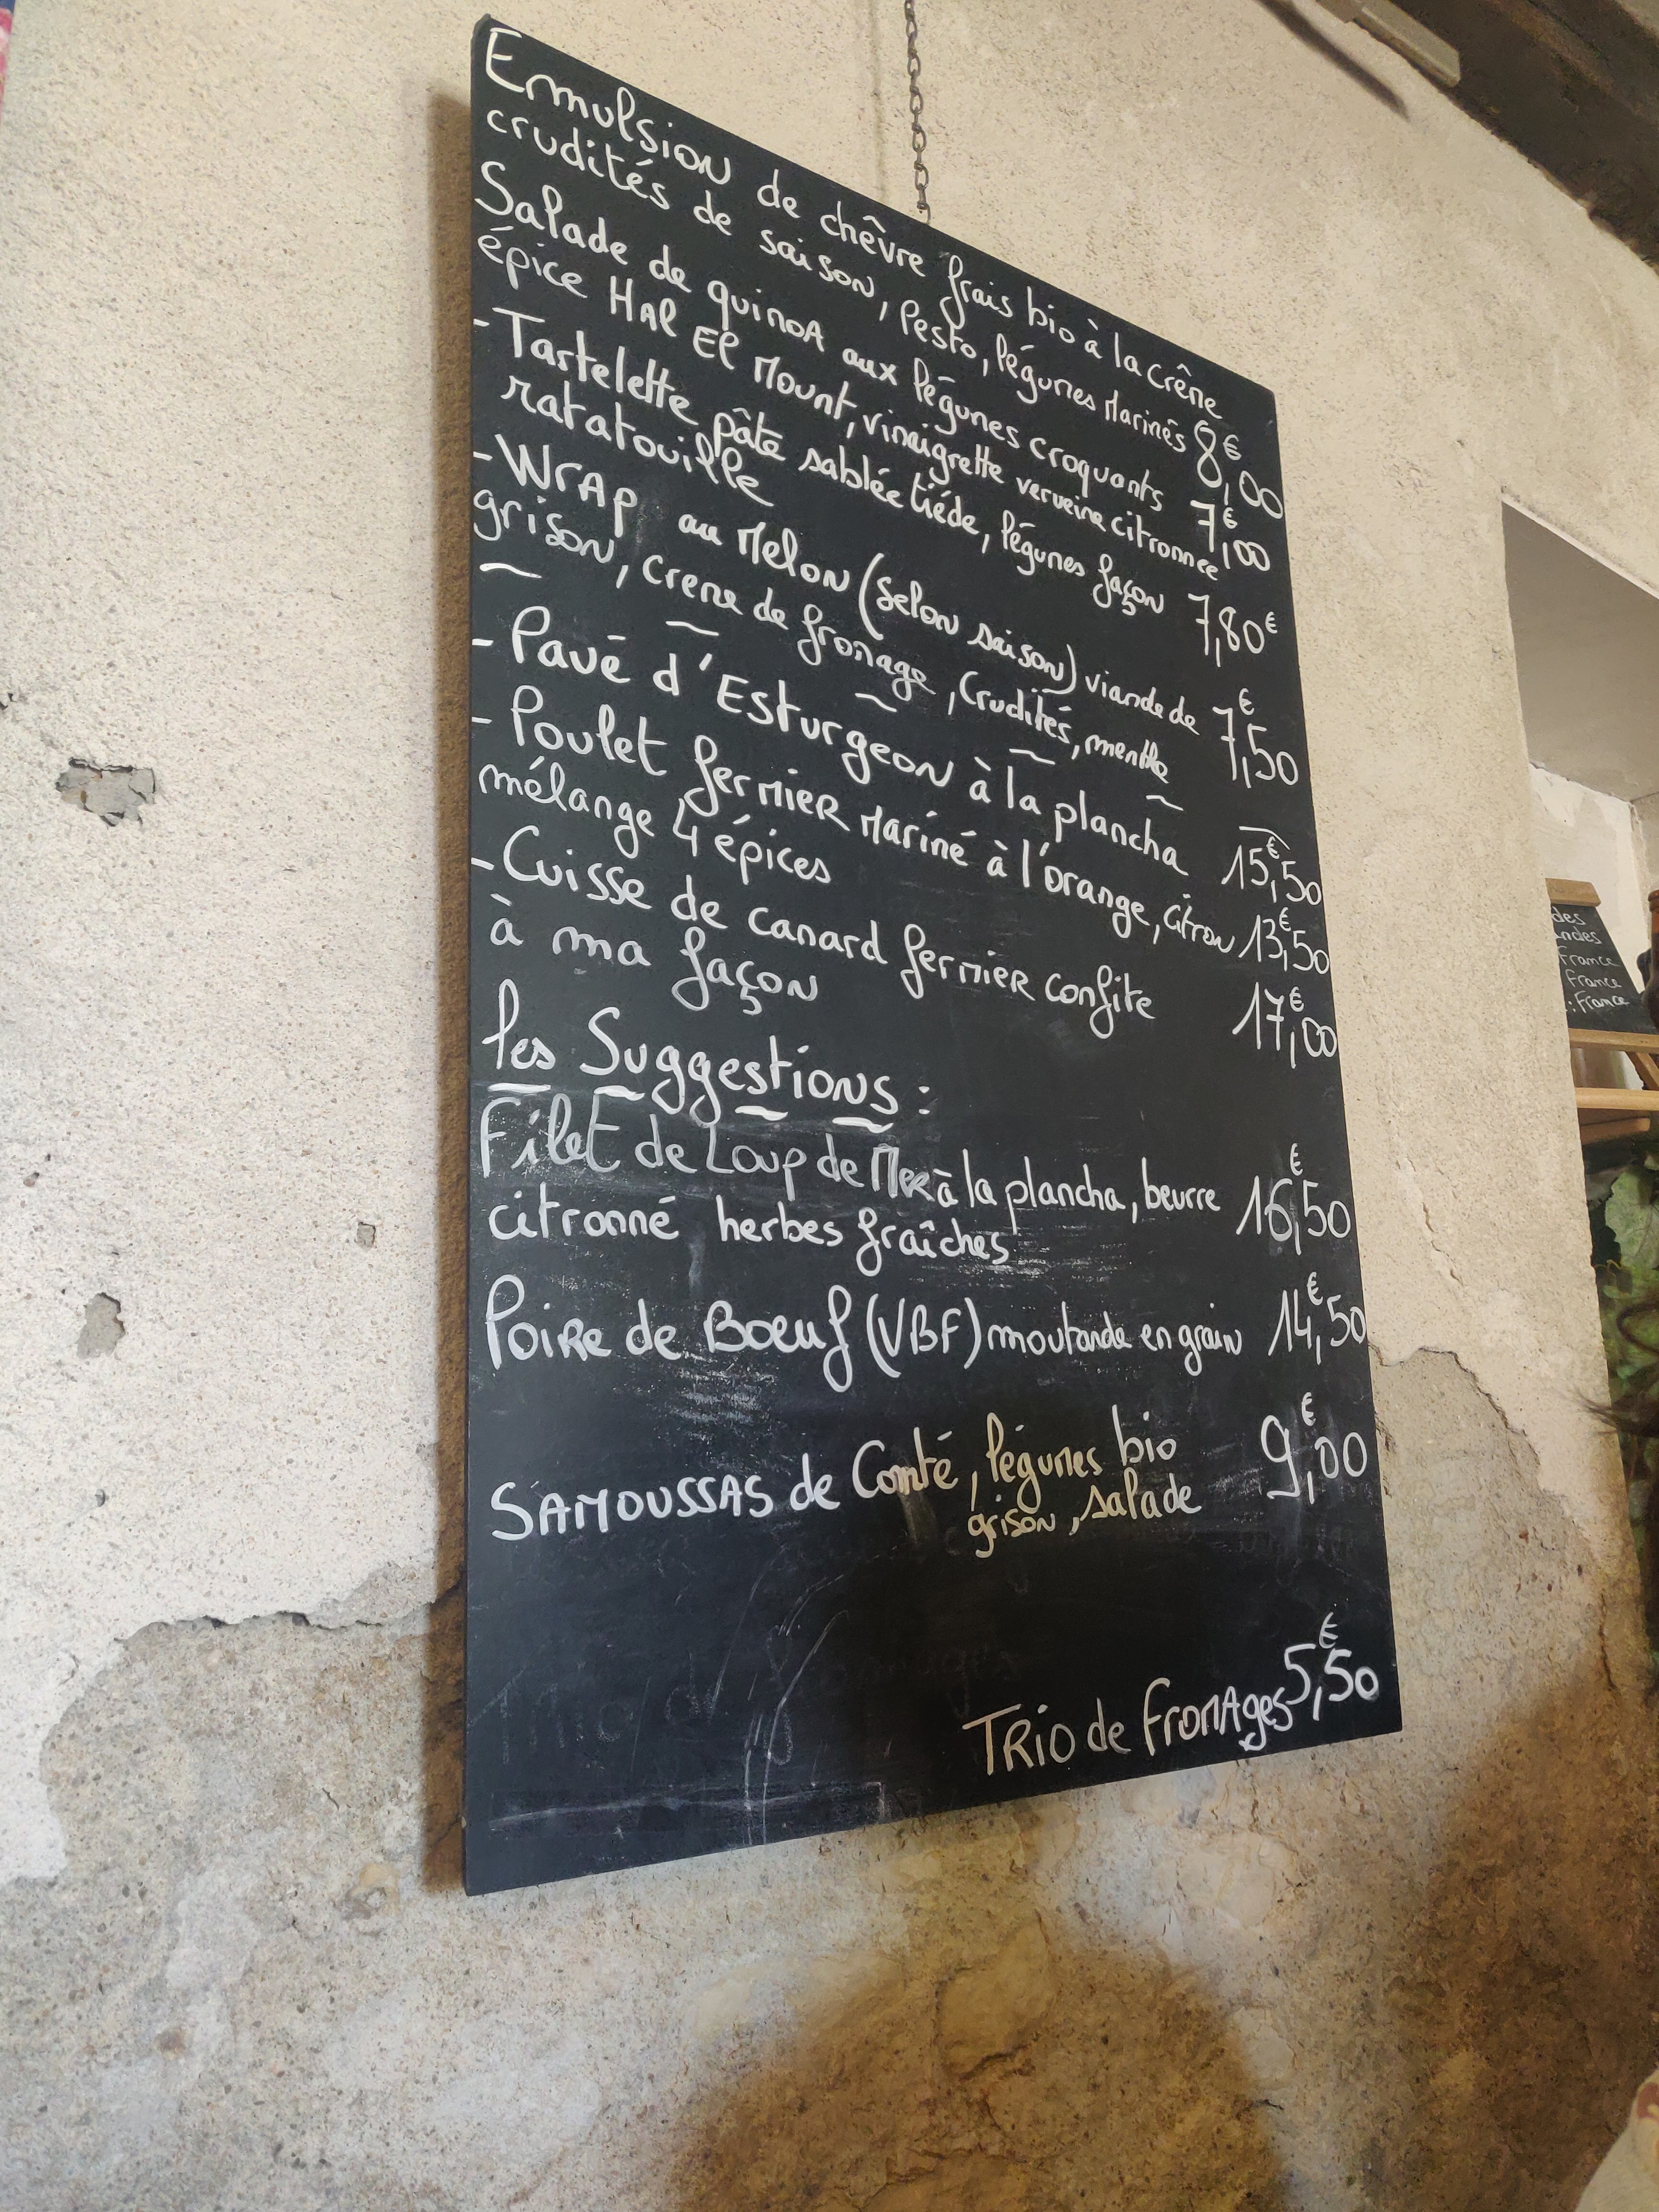 Emulsion de chêvre frais bio à la crême
crudités de saison, Pesto, légumes Marinés 8,00€
Salade de quinoA aux légumes croquants 7,00€
épice HAl El Mount, vinaigrette verveine citronnée
-Tartelette pâte sablée tiéde, légumes façon 7,80€
ratatouille
-WrAP au Melon (Selon saison) viande de 7,50€
grison, creme de fromage, Crudités, menthe
-Pavé d'Esturgeon à la plancha 15,50€
-Poulet fermier Mariné à l'orange, citron 13,50€
mélange 4 épices
-Cuisse de canard fermier confite 17,00€
à ma façon
les Suggestions:
Filet de Loup de Mer à la plancha, beurre 16,50€
citronné herbes fraîches
Poire de Boeuf (VBF) moutarde en grain 14,50€
SAMOUSSAS de Comté, légumes bio 9,00€
grison, salade
TRIO de fromAges 5,50€
des
ndes
France
France
: France